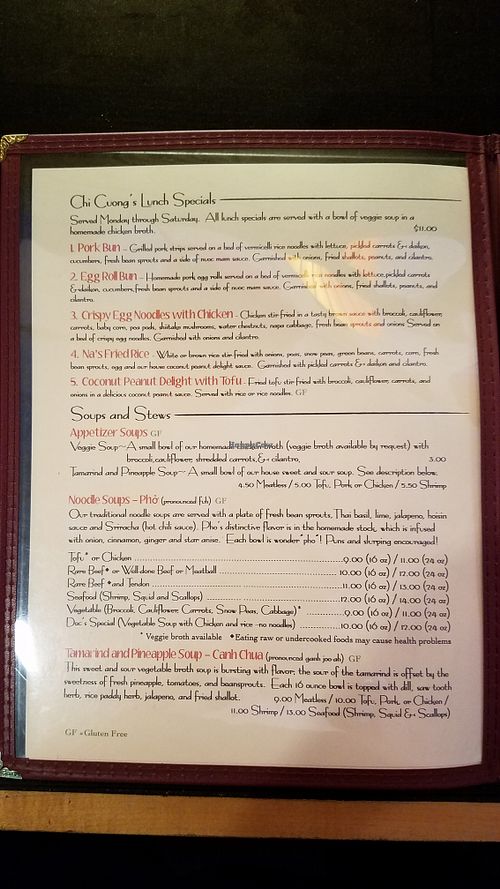 Chi Cuong's Lunch Specials
Served Monday through Saturday. All lunch specials are served with a bowl of veggie soup in a
homemade chicken broth. $11.00
1. Pork Bun - Grilled pork strips served on a bed of vermicelli rice noodles with lettuce, pickled carrots & daikon,
cucumbers, fresh bean sprouts and a side of nuoc mam sauce. Garnished with onions, fried shallots, peanuts, and cilantro.
2. Egg Roll Bun - Homemade pork egg rolls served on a bed of vermicelli rice noodles with lettuce, pickled carrots
& daikon, cucumbers, fresh bean sprouts and a side of nuoc mam sauce. Garnished with onions, fried shallots, peanuts, and
cilantro.
3. Crispy Egg Noodles with Chicken - Chicken stir fried in a tasty brown sauce with broccoli, cauliflower,
carrots, baby corn, pea pods, shiitake mushrooms, water chestnuts, napa cabbage, fresh bean sprouts and onions Served on
a bed of crispy egg noodles. Garnished with onions and cilantro.
4. Na's Fried Rice - White or brown rice stir fried with onions, peas, snow peas, green beans, carrots, corn, fresh
bean sprouts, egg and our house coconut peanut delight sauce. Garnished with pickled carrots & daikon and cilantro.
5. Coconut Peanut Delight with Tofu - Fried tofu stir fried with broccoli, cauliflower, carrots, and
onions in a delicious coconut peanut sauce. Served with rice or rice noodles. GF
Soups and Stews
Appetizer Soups GF
Veggie Soup~A small bowl of our homemade chicken broth (veggie broth available by request) with
broccoli, cauliflower, shredded carrots, & cilantro, 3.00
Tamarind and Pineapple Soup~ A small bowl of our house sweet and sour soup. See description below.
4.50 Meatless / 5.00 Tofu, Pork or Chicken / 5.50 Shrimp
Noodle Soups - Phở (pronounced fuh) GF
Our traditional noodle soups are served with a plate of fresh bean sprouts, Thai basil, lime, jalapeno, hoisin
sauce and Srirracha (hot chili sauce). Pho's distinctive flavor is in the homemade stock, which is infused
with onion, cinnamon, ginger and star anise. Each bowl is wonder"pho"l! Puns and slurping encouraged!
Tofu* or Chicken ...9.00 (16 oz) / 11.00 (24 oz)
Rare Beef♦ or Well-done Beef or Meatball ... 10.00 (16 oz) / 12.00 (24 oz)
Rare Beef♦ and Tendon ... 11.00 (16 oz) / 13.00 (24 oz)
Seafood (Shrimp, Squid and Scallops) ...12.00 (16 oz) / 14.00 (24 oz)
Vegetable (Broccoli, Cauliflower, Carrots, Snow Peas, Cabbage)* ...9.00 (16 oz) / 11.00 (24 oz)
Doc's Special (Vegetable Soup with Chicken and rice -no noodles) ...10.00 (16 oz) / 12.00 (24 oz)
* Veggie broth available ♦Eating raw or undercooked foods may cause health problems
Tamarind and Pineapple Soup - Canh Chua (pronounced ganh joo ah) GF
This sweet and sour vegetable broth soup is bursting with flavor; the sour of the tamarind is offset by the
sweetness of fresh pineapple, tomatoes, and beansprouts. Each 16 ounce bowl is topped with dill, saw tooth
herb, rice paddy herb, jalapeno, and fried shallot. 9.00 Meatless / 10.00 Tofu, Pork, or Chicken /
11.00 Shrimp / 13.00 Seafood (Shrimp, Squid & Scallops)
GF = Gluten Free